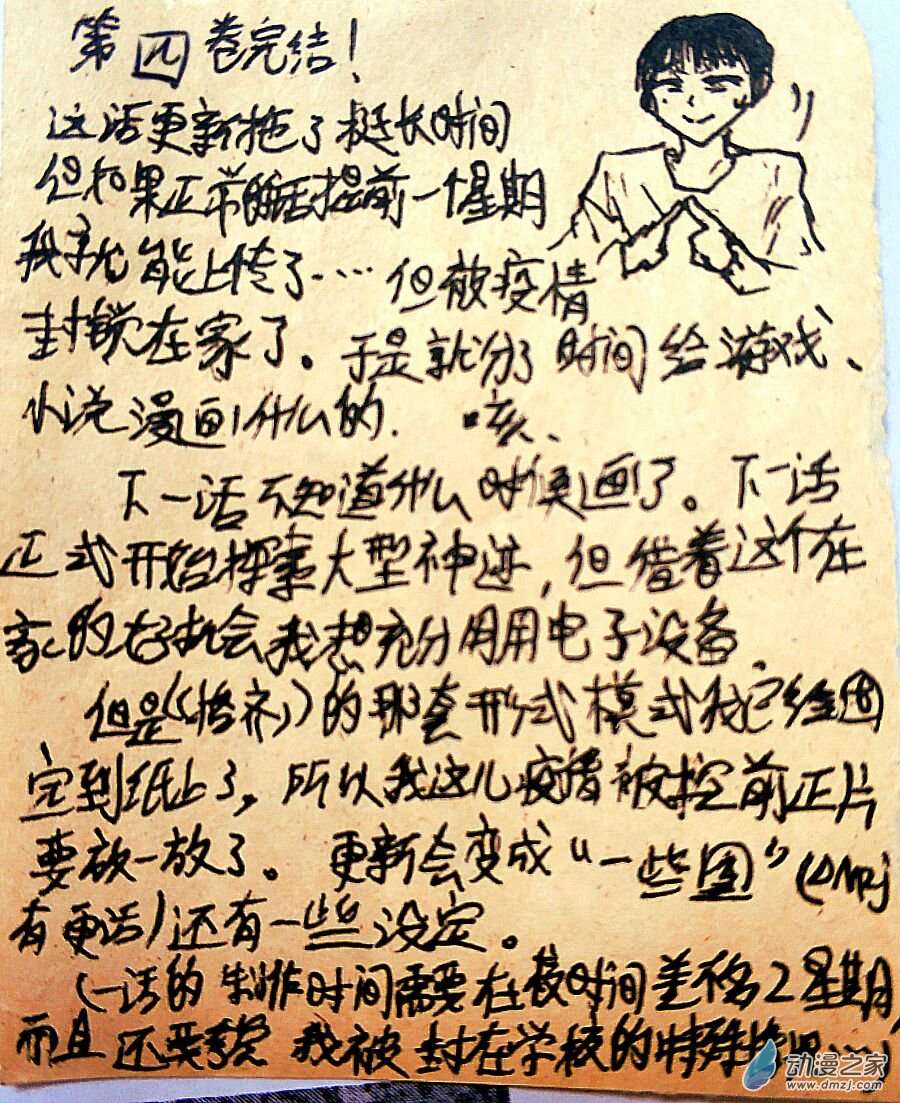 第四卷完结！
这话更新拖了挺长时间
但如果正常的话提前一个星期
我就能上传了……但被疫情
封锁在家了。于是就分了时间给游戏、
小说漫画什么的. 咳、
下一话不知道什么时候画了。下一话
正式开始探索大型神迹，但借着这个在
家的好机会我想充分用用电子设备.
但是《悟齐》的那套形式模式我已经固
定到纸上了，所以我这儿疫情被控前正片
要放一放了。更新会变成“一些图”(DMZJ
有更话)还有一些设定。
(一话的制作时间需要在校时间差不多2星期,
而且还要我被封在学校的特殊
动漫之家
www.dmzj.com